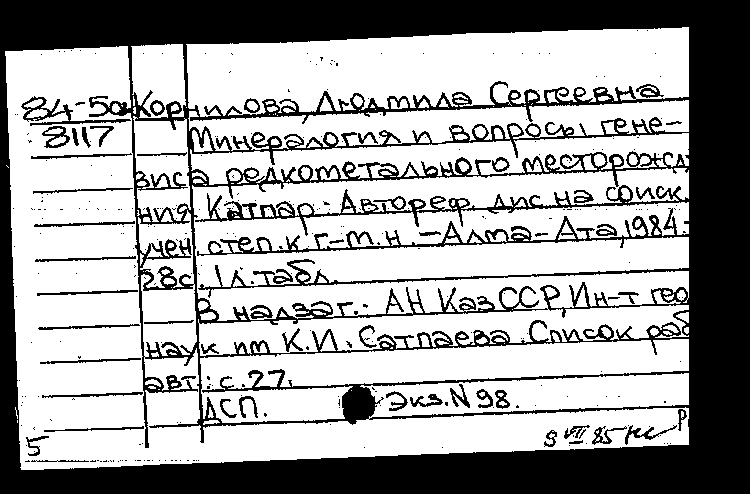 84-5 Корнилова, Людмила Сергеевна
8117 Минералогия и вопросы гене-
зиса редкометального месторожд
ния Катпар: Автореф. дис. на соиск.
учен. степ. к. г.-м. н. - Алма-Ата, 1984.-
28с., 1 л. табл.
В надзаг.: АН КазССР, Ин-т гео
наук им. К.И. Сатпаева. Список раб
авт.: с. 27.
ДСП. Экз. N 98.
5 8 VII 85 Р